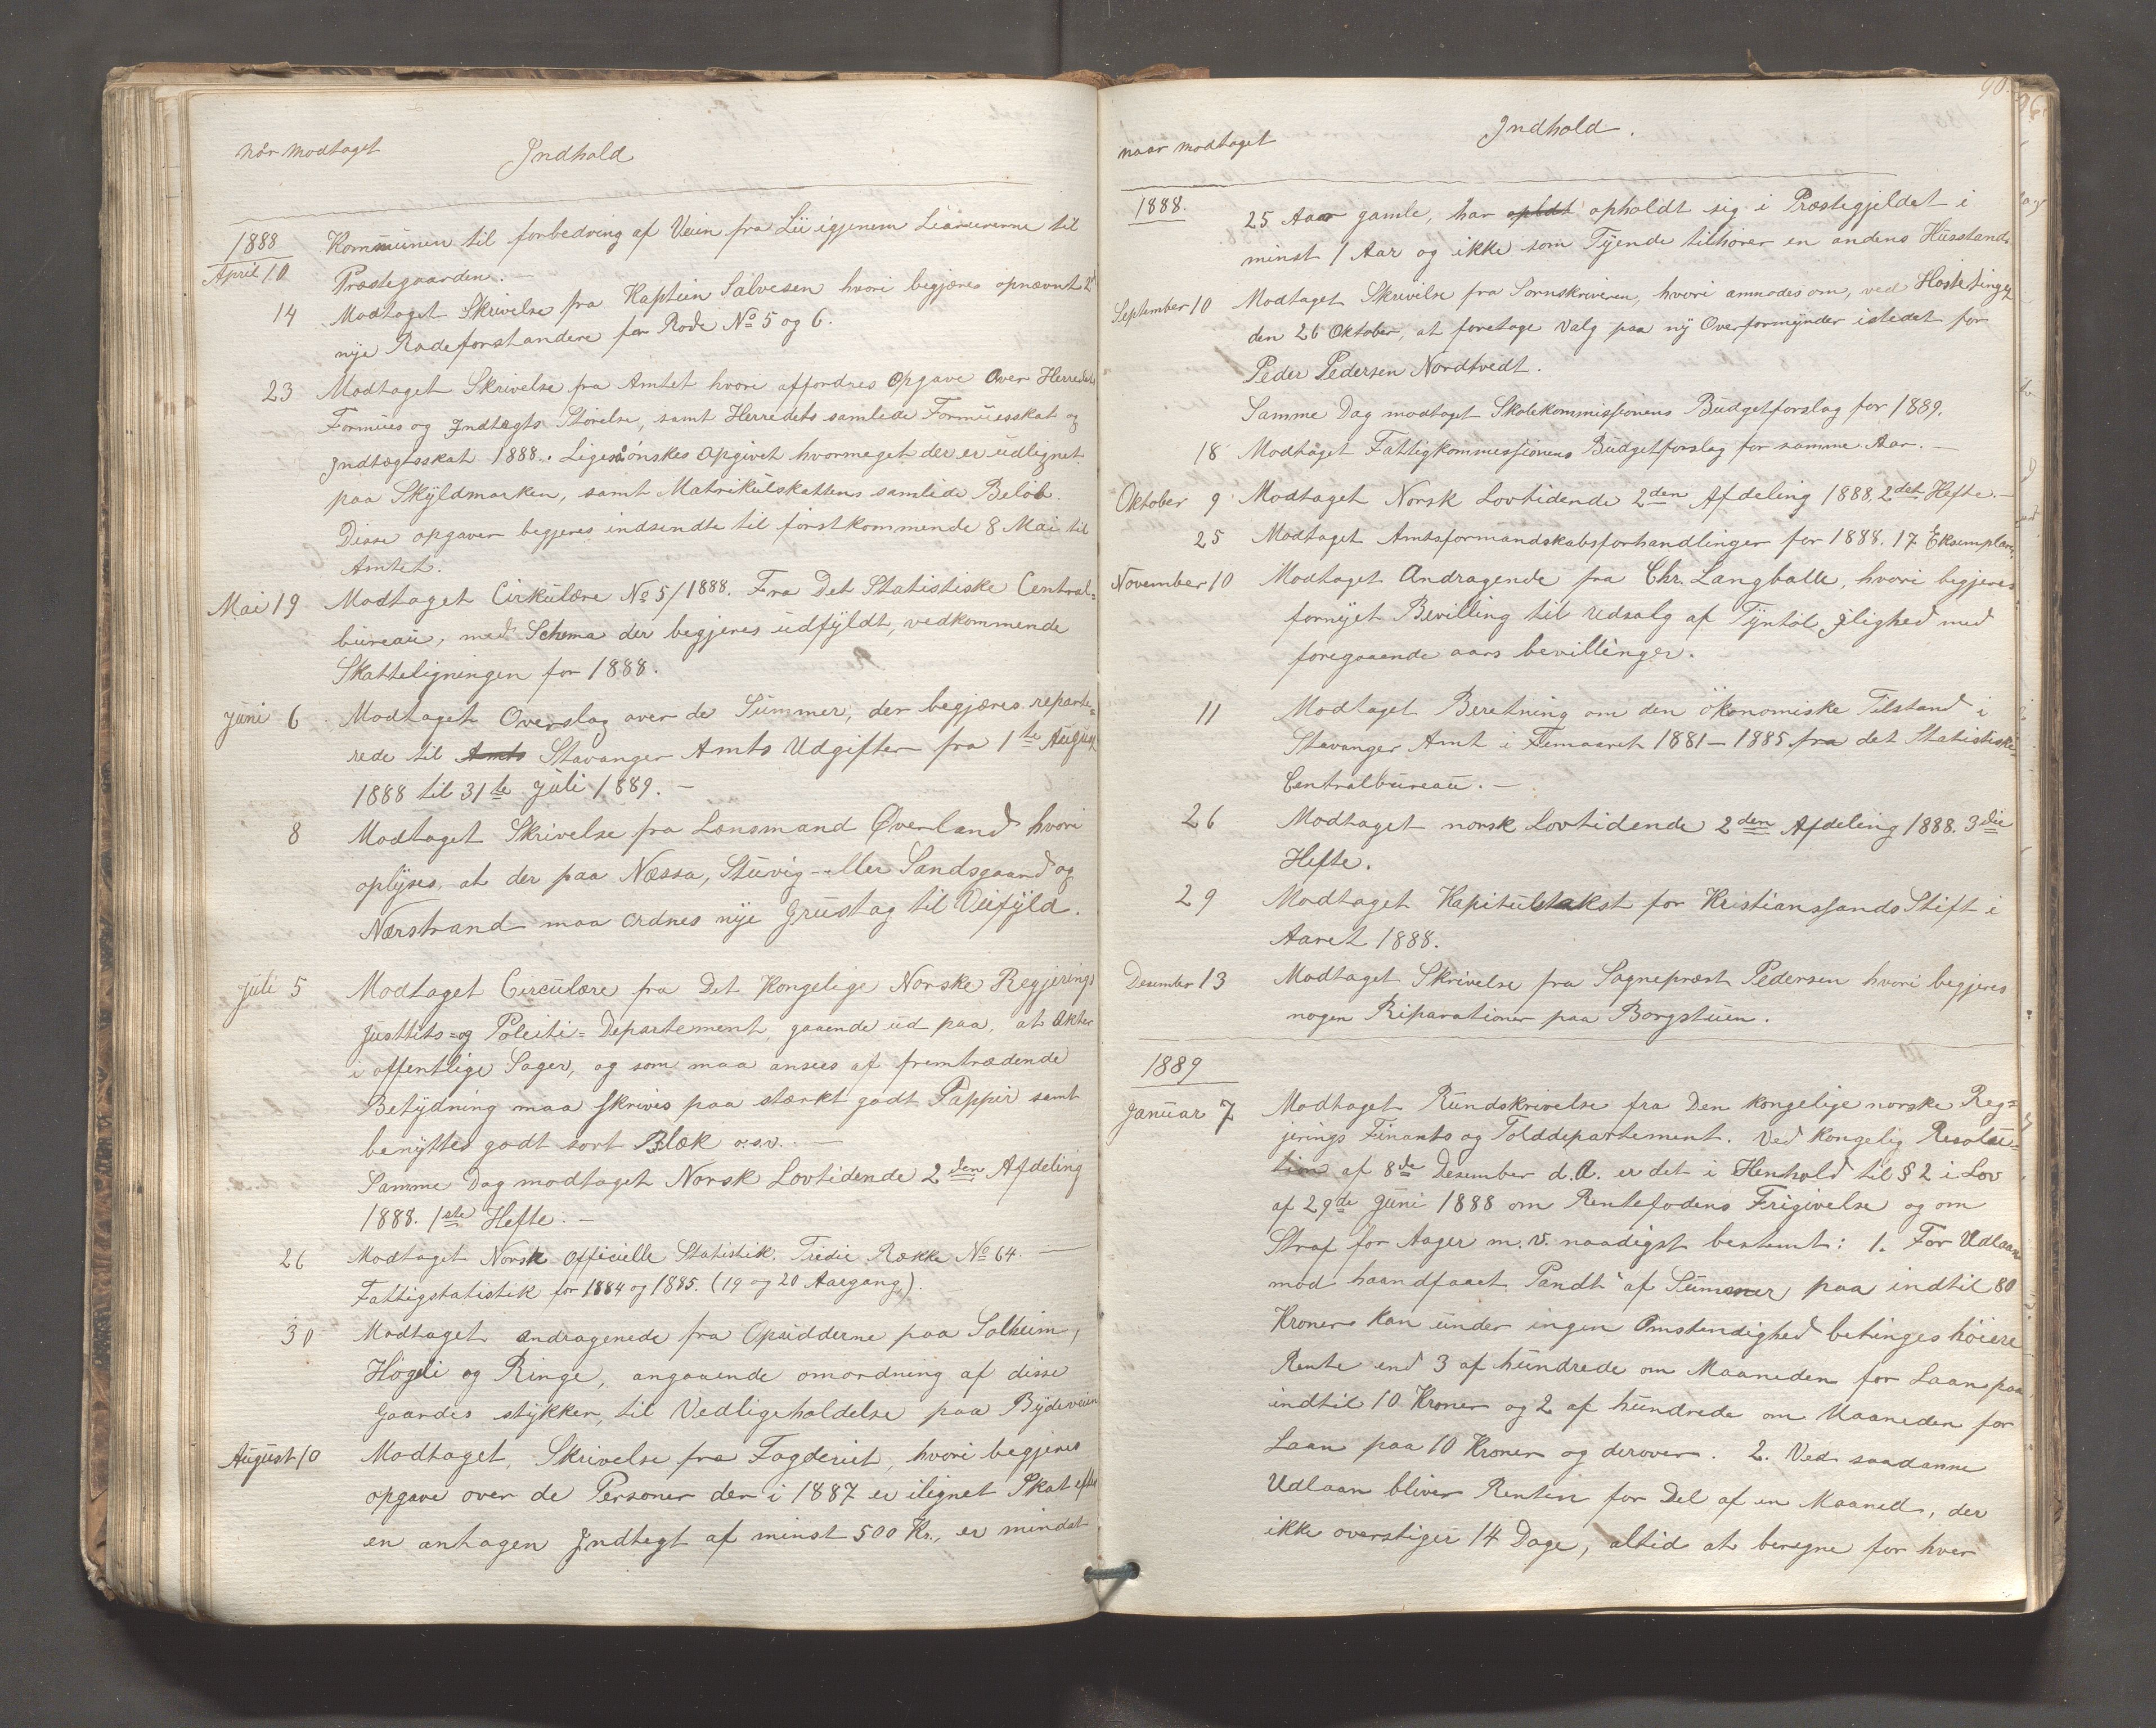 når modtaget Indhold
1888 Kommunen til forbedring af Veien fra Lii igjenem til
April 10 Præstegaarden. —
14 Modtaget Skrivelse fra Kaptein Salvesen hvori begjæres opnævnt 2
nye Rodeforstandere for Rode No 5 og 6.
23 Modtaget Skrivelse fra Amtet hvori affordres Opgave Over Herredets
Formues og Indtægts Störelse, samt Herredets samlede Formuesskat og
Indtægtsskat 1888. Ligeså önskes Opgivet hvormeget der er udlignet
paa Skyldmarken, samt Matrikulskattens samlede Belöb.
Disse opgaver begjeres indsendte til förstkommende 8 Mai til
Amtet.
Mai 19 Modtaget Cirkulære No 5/1888. Fra Det Statistiske Central=
bureau, med Schema der begjeres udfyldt, vedkommende
Skatteligningen for 1888.
Juni 6 Modtaget Overslag over de Summer, der begjæres reparte=
rede til Amts Stavanger Amts Udgifter fra 1te August
1888 til 31te Juli 1889. —
8 Modtaget Skrivelse fra Lensmand Øverland hvori
oplyses, at der paa Næssa, Stuvig- eller Sandsgaard og
Nærstrand maa ordnes nye Grustag til Veifyld.
Juli 5 Modtaget Circulære fra Det Kongelige Norske Regjerings
Justtits= og Poleiti= Departement, gaaende ud paa, at Akter
i offentlige Sager, og som maa ansees af fremtrædende
Betydning maa skrives paa stærkt godt Pappir samt
benyttes godt sort Blæk o.s.v. —
Samme Dag modtaget Norsk Lovtidende 2den Afdeling
1888. 1ste Hefte. —
26 Modtaget Norsk Officielle Statistik. Tredie Række No 64. —
Fattigstatistik for 1884 og 1885. (19 og 20 Aargang).
30 Modtaget andragenede fra Opsidderne paa Solheim,
Högeli og Ringe, angaaende omordning af disse
Gaardes stykker, til Vedligeholdelse paa Bydeveien
August 10 Modtaget, Skrivelse fra Fogderiet, hvori begjeres
opgave over de Personer der i 1887 er ilignet Skat efter
en antagen Indtegt af minst 500 Kr., er mindst
90.
96
naar modtaget Indhold.
1888. 25 Aar gamle, har opldt opholdt sig i Præstegjeldet i
minst 1 Aar og ikke som Tyende tilhører en andens Husstand.
September 10 Modtaget Skrivelse fra Sornskriveren, hvori anmodes om, ved Höstetinget
den 26 Oktober, at foretage Valg paa ny Overformynder istedet for
Peder Pedersen Nordtvedt.
Samme Dag modtaget Skolekommissionens Budgetforslag for 1889.
18 Modtaget Fattigkommissionens Budgetforslag for samme Aar. —
Oktober 9 Modtaget Norsk Lovtidende 2den Afdeling 1888, 2det Hefte. —
25 Modtaget Amtsformandskabsforhandlinger for 1888. 17 Eksemplarer.
November 10 Modtaget Andragende fra Chr. Langballe, hvori begjeres
fornyet Bevilling til Udsalg af Tyntöl, ilighed med
foregaaende aars bevillinger.
11 Modtaget Beretning om den ökonomiske Tilstand i
Stavanger Amt i Femaaret 1881 — 1885 fra det Statistiske
Centralbureau. —
26 Modtaget norsk Lovtidende 2den Afdeling 1888. 3die
Hefte.
29 Modtaget Kapitulstakst for Kristianssands Stift i
Aaret 1888.
Desember 13 Modtaget Skrivelse fra Sognepræst Pedersen hvori begjeres
nogen Riparationer paa Borgstuen.
1889
Januar 7 Modtaget Rundskrivelse fra Den kongelige norske Reg=
jerings Finants og Tolddepartement. Ved kongelig Resolu=
tion af 8de Desember d.A. er det i Henhold til § 2 i Lov
af 29de Juni 1888 om Rentefodens Frigivelse og om
Straf for Aager m.v. naadigst bestemt: 1. For Udlaan
mod haandfaaet Pandt af Summer paa indtil 80
Kroner kan under ingen Omstendighed betinges höiere
Rente end 3 af hundrede om Maaneden for Laan paa
indtil 10 Kroner og 2 af hundrede om Maaneden for
Laan paa 10 Kroner og derover. 2. Ved saadanne
Udlaan bliver Renten for Del af en Maaned, der
ikke overstiger 14 Dage, altid at beregne for hver